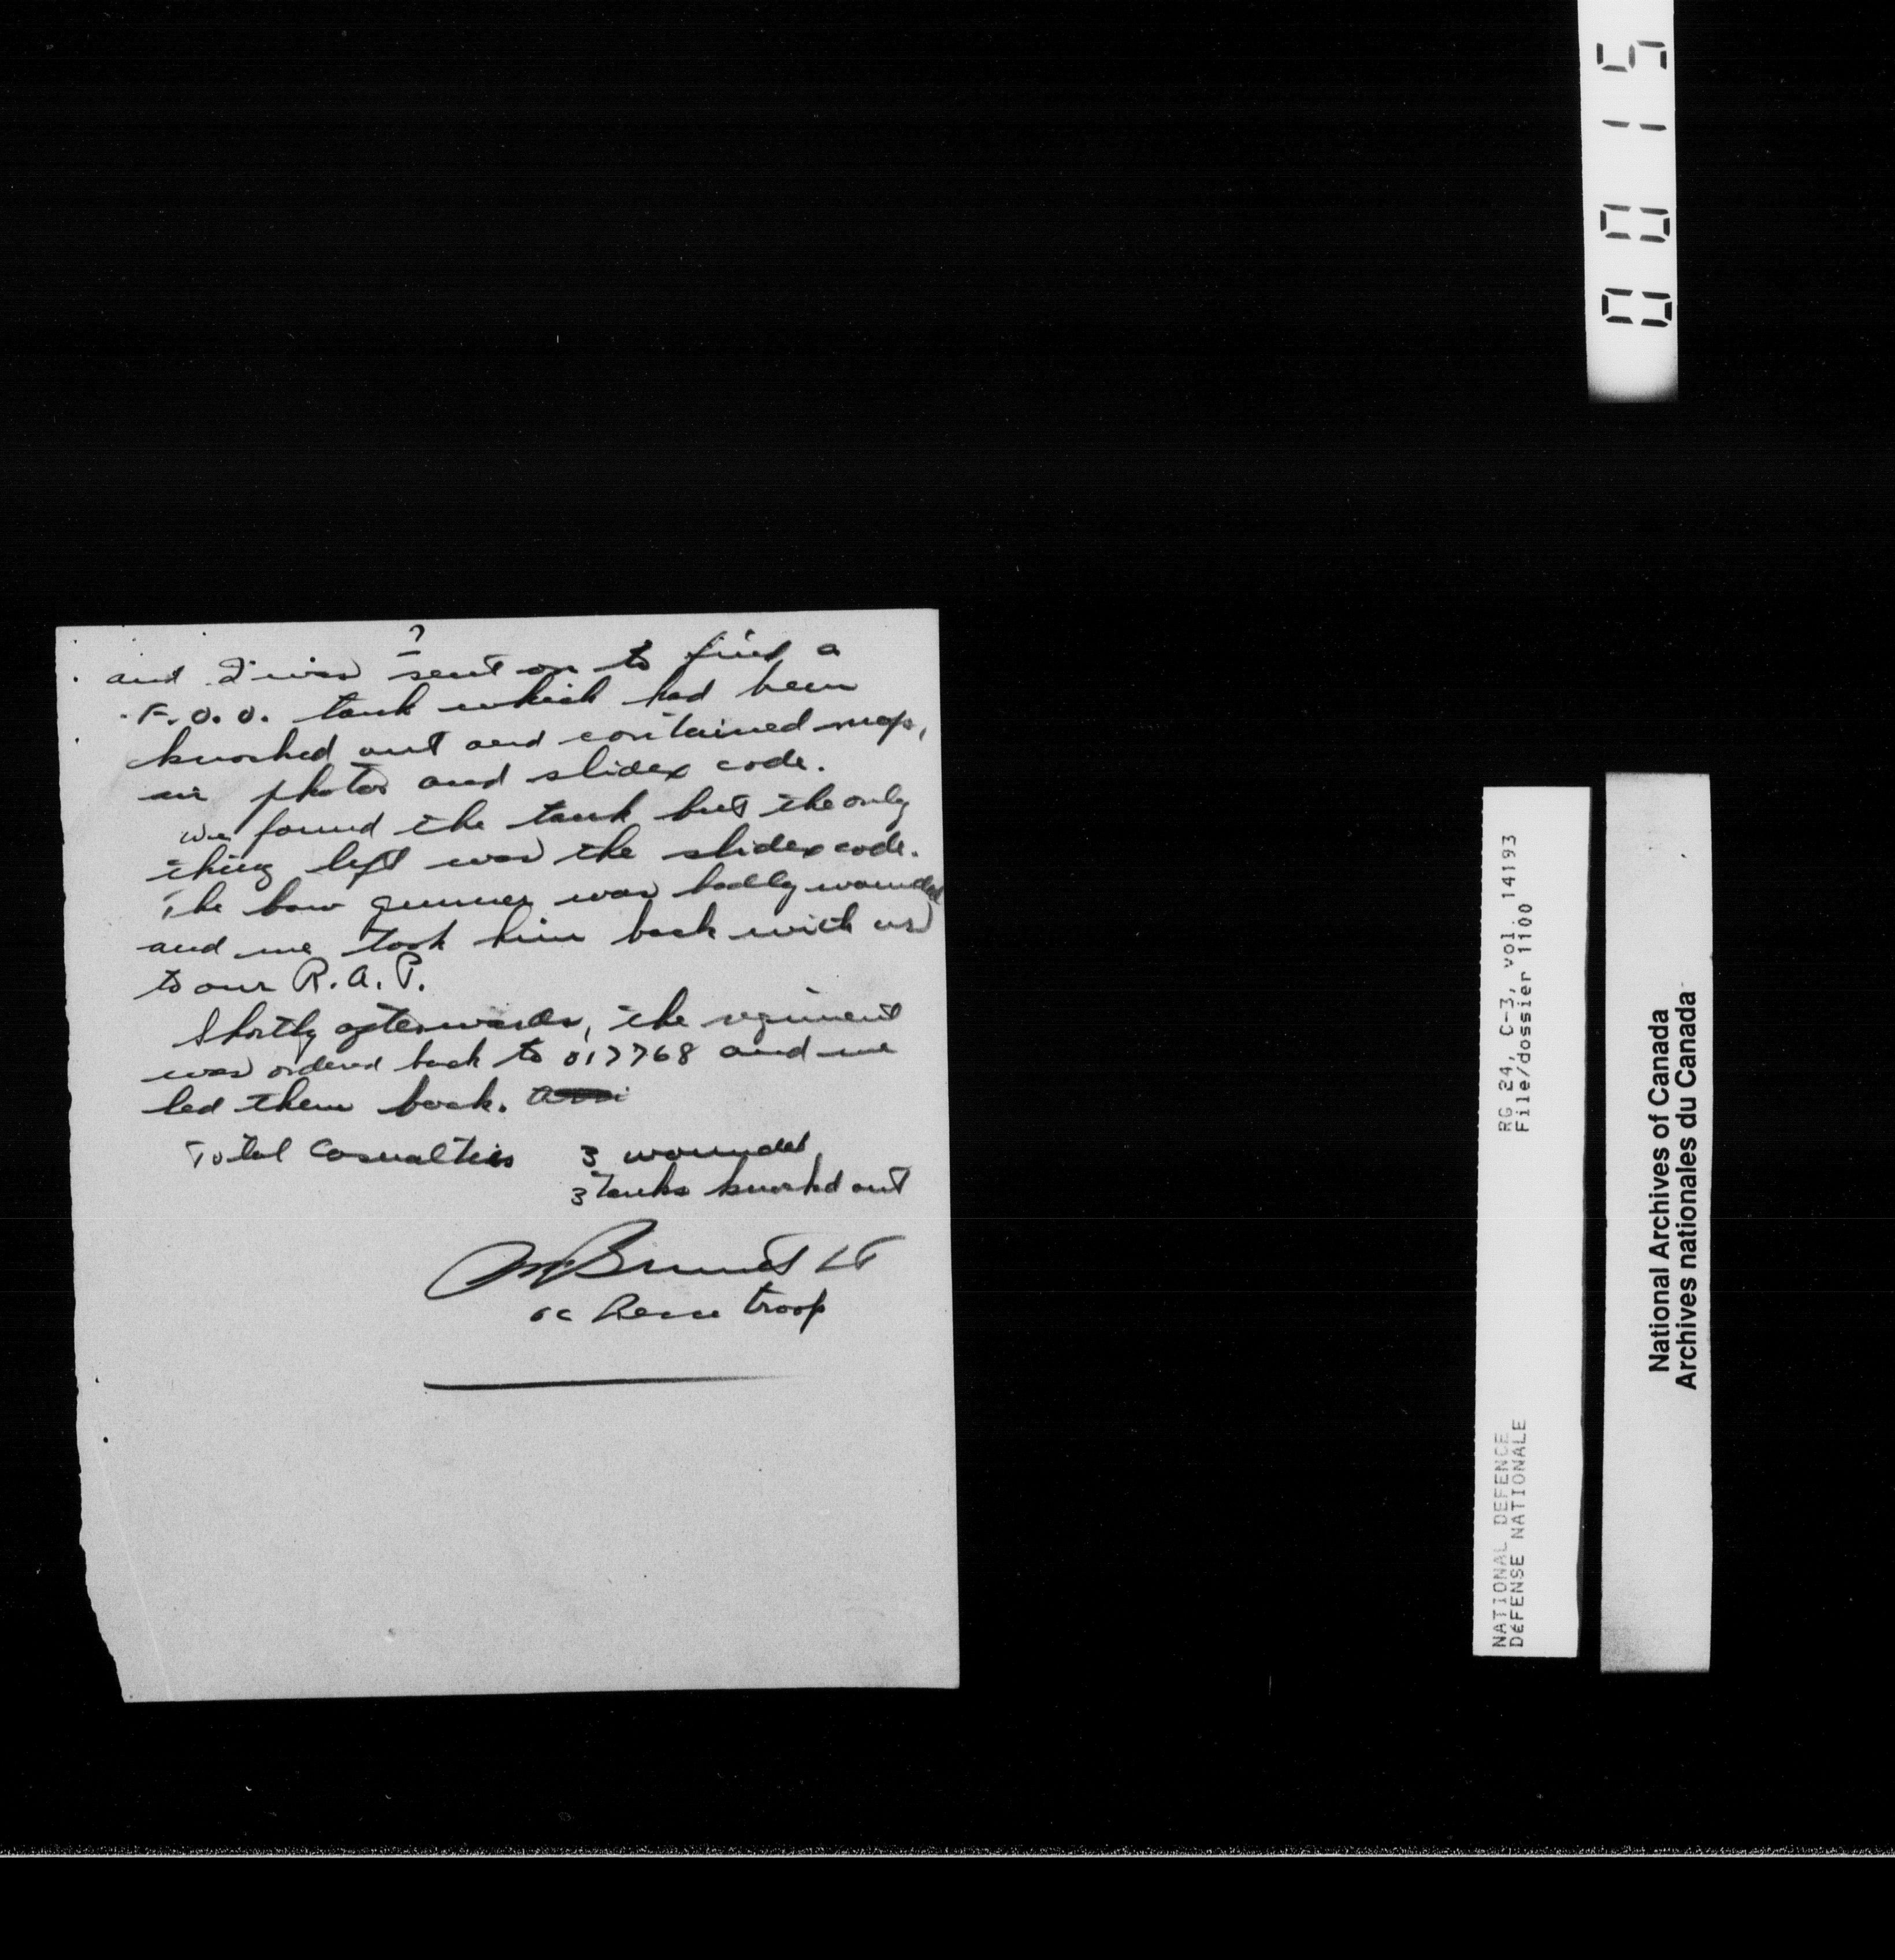 ?
and I was sent on to find a
F.O.O. tank which had been
knocked out and contained maps,
air photos and slidex code.
We found the tank but the only
thing left was the slidex code.
The bow gunner was badly wounded
and we took him back with us
to our R.A.P.
Shortly afterwards, the regiment
was ordered back to 017768 and we
led them back.
Total Casualties 3 wounded
3 tanks knocked out
Lt
oc Recce troop
00015
RG 24, C-3, vol. 14193
File/dossier 1100
NATIONAL DEFENCE
DéFENSE NATIONALE
National Archives of Canada
Archives nationales du Canada